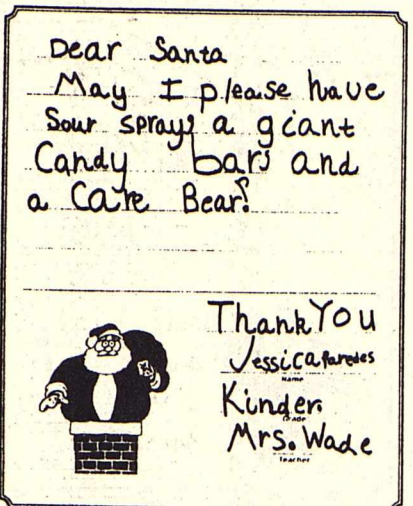 Dear Santa
May I please have
Sour spray, a giant
Candy bar, and
a Care Bear?
Thank You
Jessica Paredes
Name
Kinder.
Grade
Mrs. Wade
Teacher